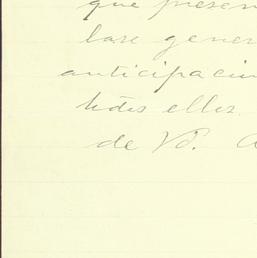 que presen
base gener
anticipacion
tedes ellos.
de Vd. A